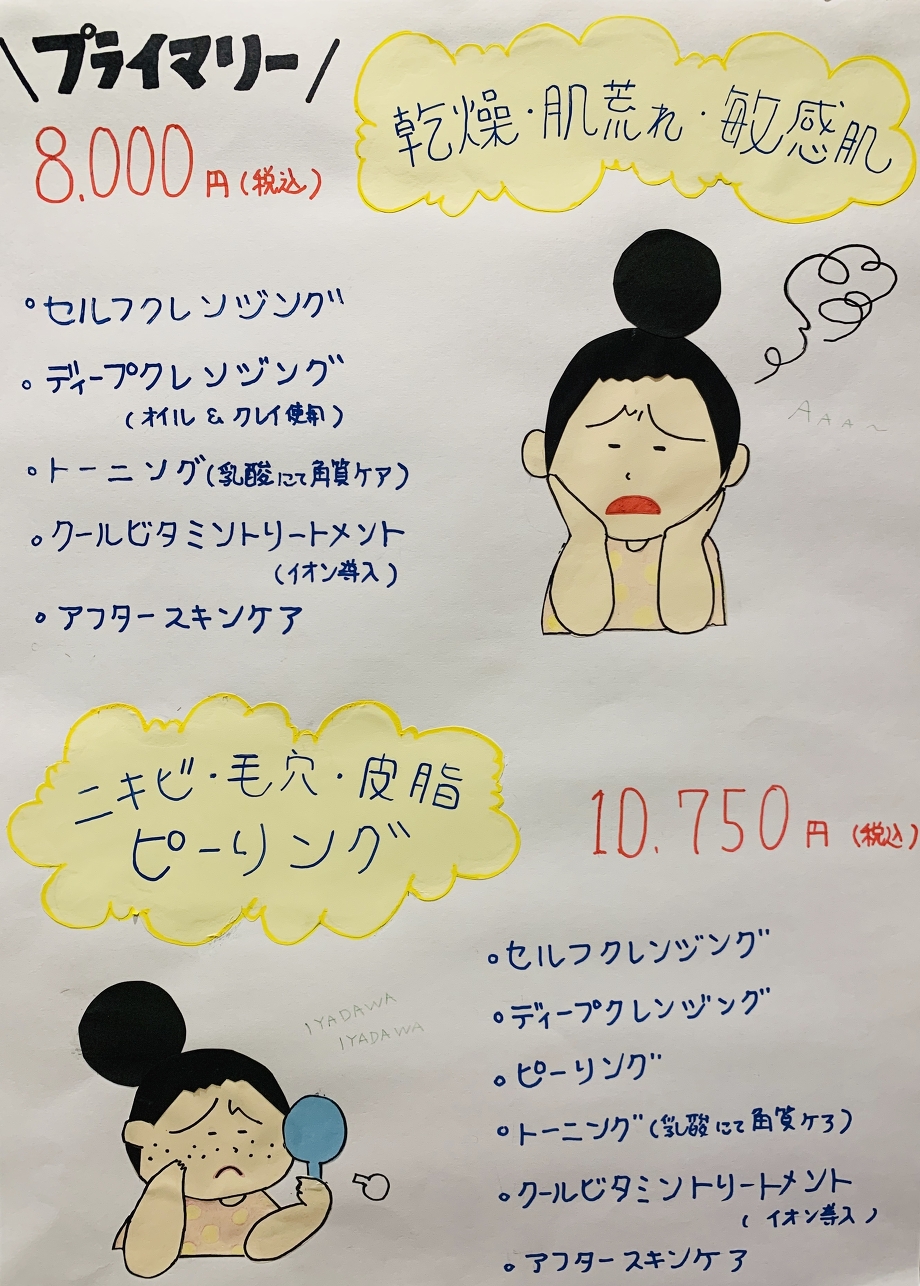 プライマリー
8.000円(税込)
乾燥・肌荒れ・敏感肌
・セルフクレンジング
・ディープクレンジング
(オイル & クレイ使用)
・トーニング(乳酸にて角質ケア)
・クールビタミントリートメント
(イオン導入)
・アフタースキンケア
AAAA~
ニキビ・毛穴・皮脂
ピーリング
10.750円(税込)
・セルフクレンジング
・ディープクレンジング
・ピーリング
・トーニング(乳酸にて角質ケア)
・クールビタミントリートメント
(イオン導入)
・アフタースキンケア
IYADAWA
IYADAWA